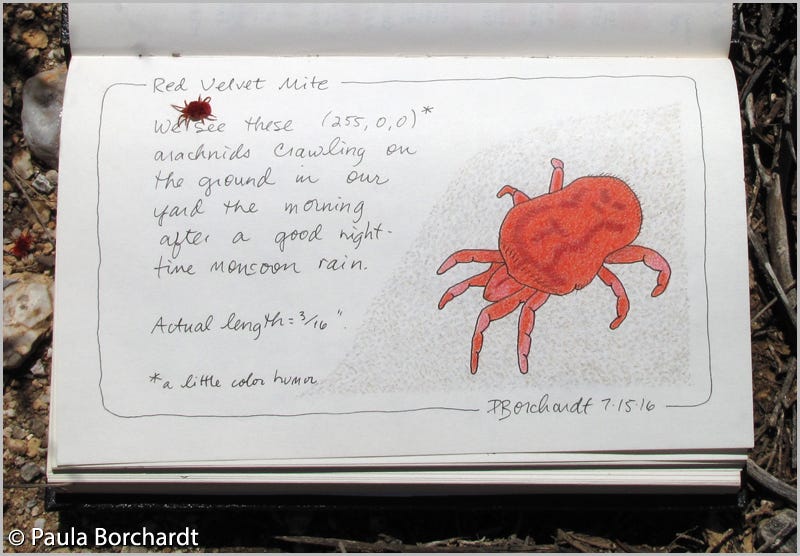 Red Velvet Mite
We see these (255,0,0)*
arachnids crawling on
the ground in our
yard the morning
after a good night-
time monsoon rain.
Actual length = 3/16".
*a little color humor
PBorchardt 7.15.16
© Paula Borchardt